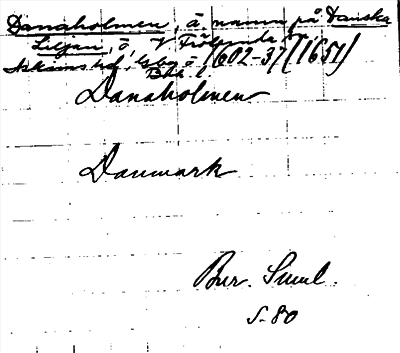 Danaholmen, ä. namn på Danska
Liljan, ö, V Frölunda sn,
Askims hd, Gbg o
Boh l 1602-37 (1651)
Danaholmen
Danmark
Bur. Suml.
S. 80